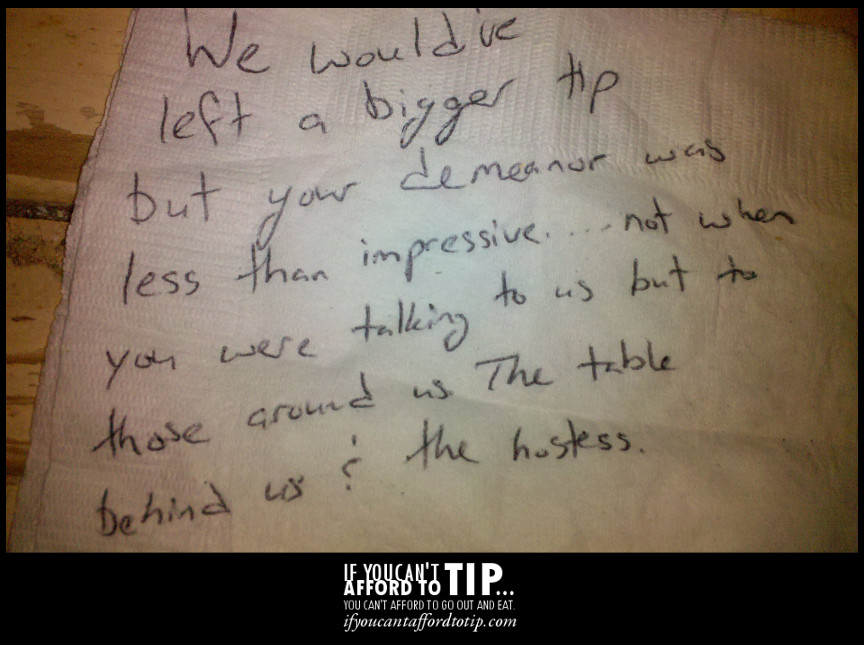 We would've
left a bigger tip
but your demeanor was
less than impressive. ... not when
you were talking to us but to
those around us The table
behind us & the hostess.
IF YOU CAN'T
AFFORD TO TIP...
YOU CAN'T AFFORD TO GO OUT AND EAT.
ifyoucantaffordtotip.com